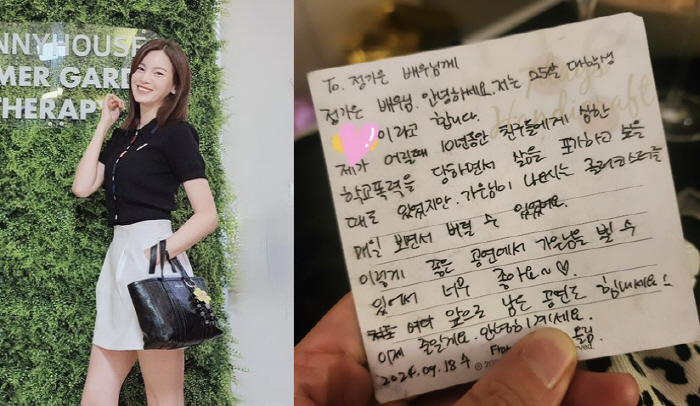 NNYHOUSE
MER GARD
THERAPY
To. 정가은 배우님께
정가은 배우님. 안녕하세요. 저는 25살 대학생
이라고 합니다.
제가 어릴때 10년동안 친구들에게 심한
학교폭력을 당하면서 삶을 포기하고 싶을
때도 있었지만. 가은님이 나오시는 롤러코스터를
매일 보면서 버틸 수 있었어요.
이렇게 좋은 공연에서 가은님을 뵐 수
있어서 너무 좋아요~♡.
앞으로 남은 공연도 힘내세요
이제 줄일게요. 안녕히계세요.
2024. 09. 18 수
From
올림